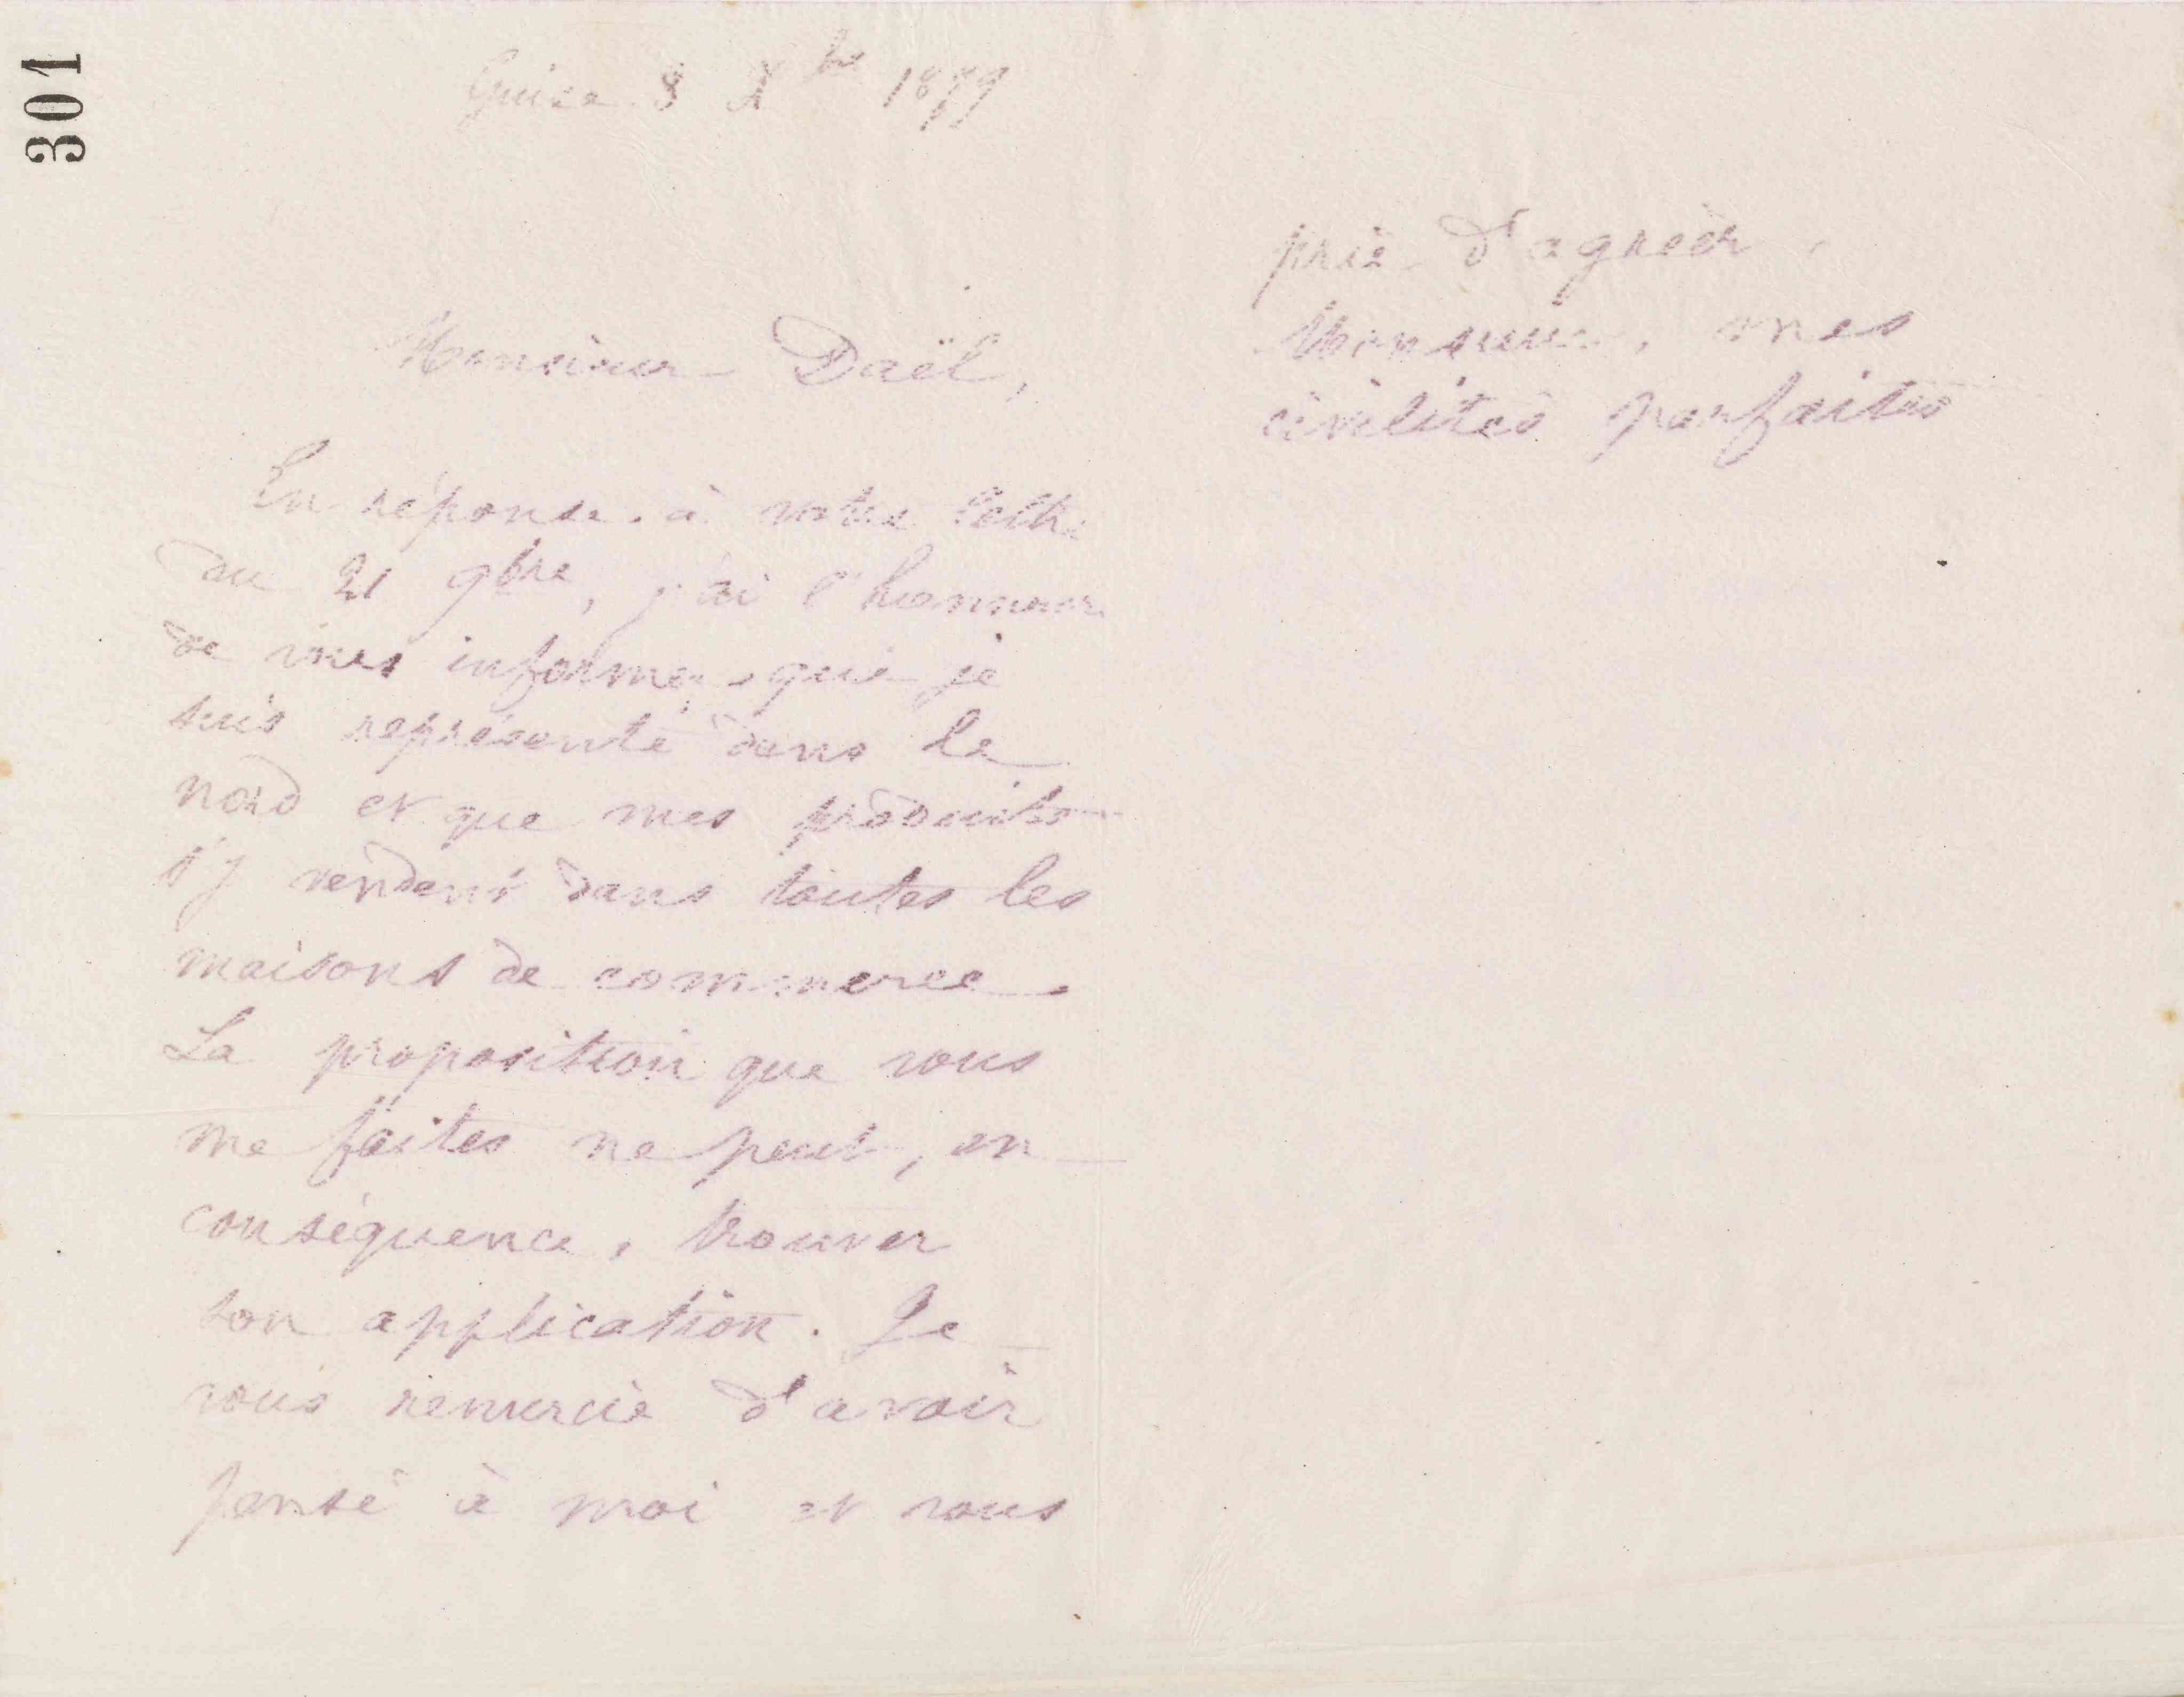 301
Guise 8 Xbre 1879
Monsieur Daël,
En réponse à votre lettre
du 21 9bre, j'ai l'honneur
de vous informer que je
suis représenté dans le
nord et que mes produits
s'y vendent dans toutes les
maisons de commerce.
La proposition que vous
me faites ne peut, en
conséquence, trouver
son application. Je
vous remercie d'avoir
pensé à moi et vous
prie d'agréer,
Monsieur, mes
civilités parfaites